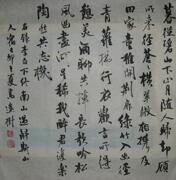 暮從碧山下山月隨人歸卻顧
所來徑蒼蒼橫翠微相攜及
田家童稚開荆扉綠竹入幽徑
青蘿拂行衣歡言得所
憩美酒聊共揮長歌吟松
風曲盡河星稀我醉君復樂
陶然共忘機
右錄李白下終南山過斛斯山
人宿